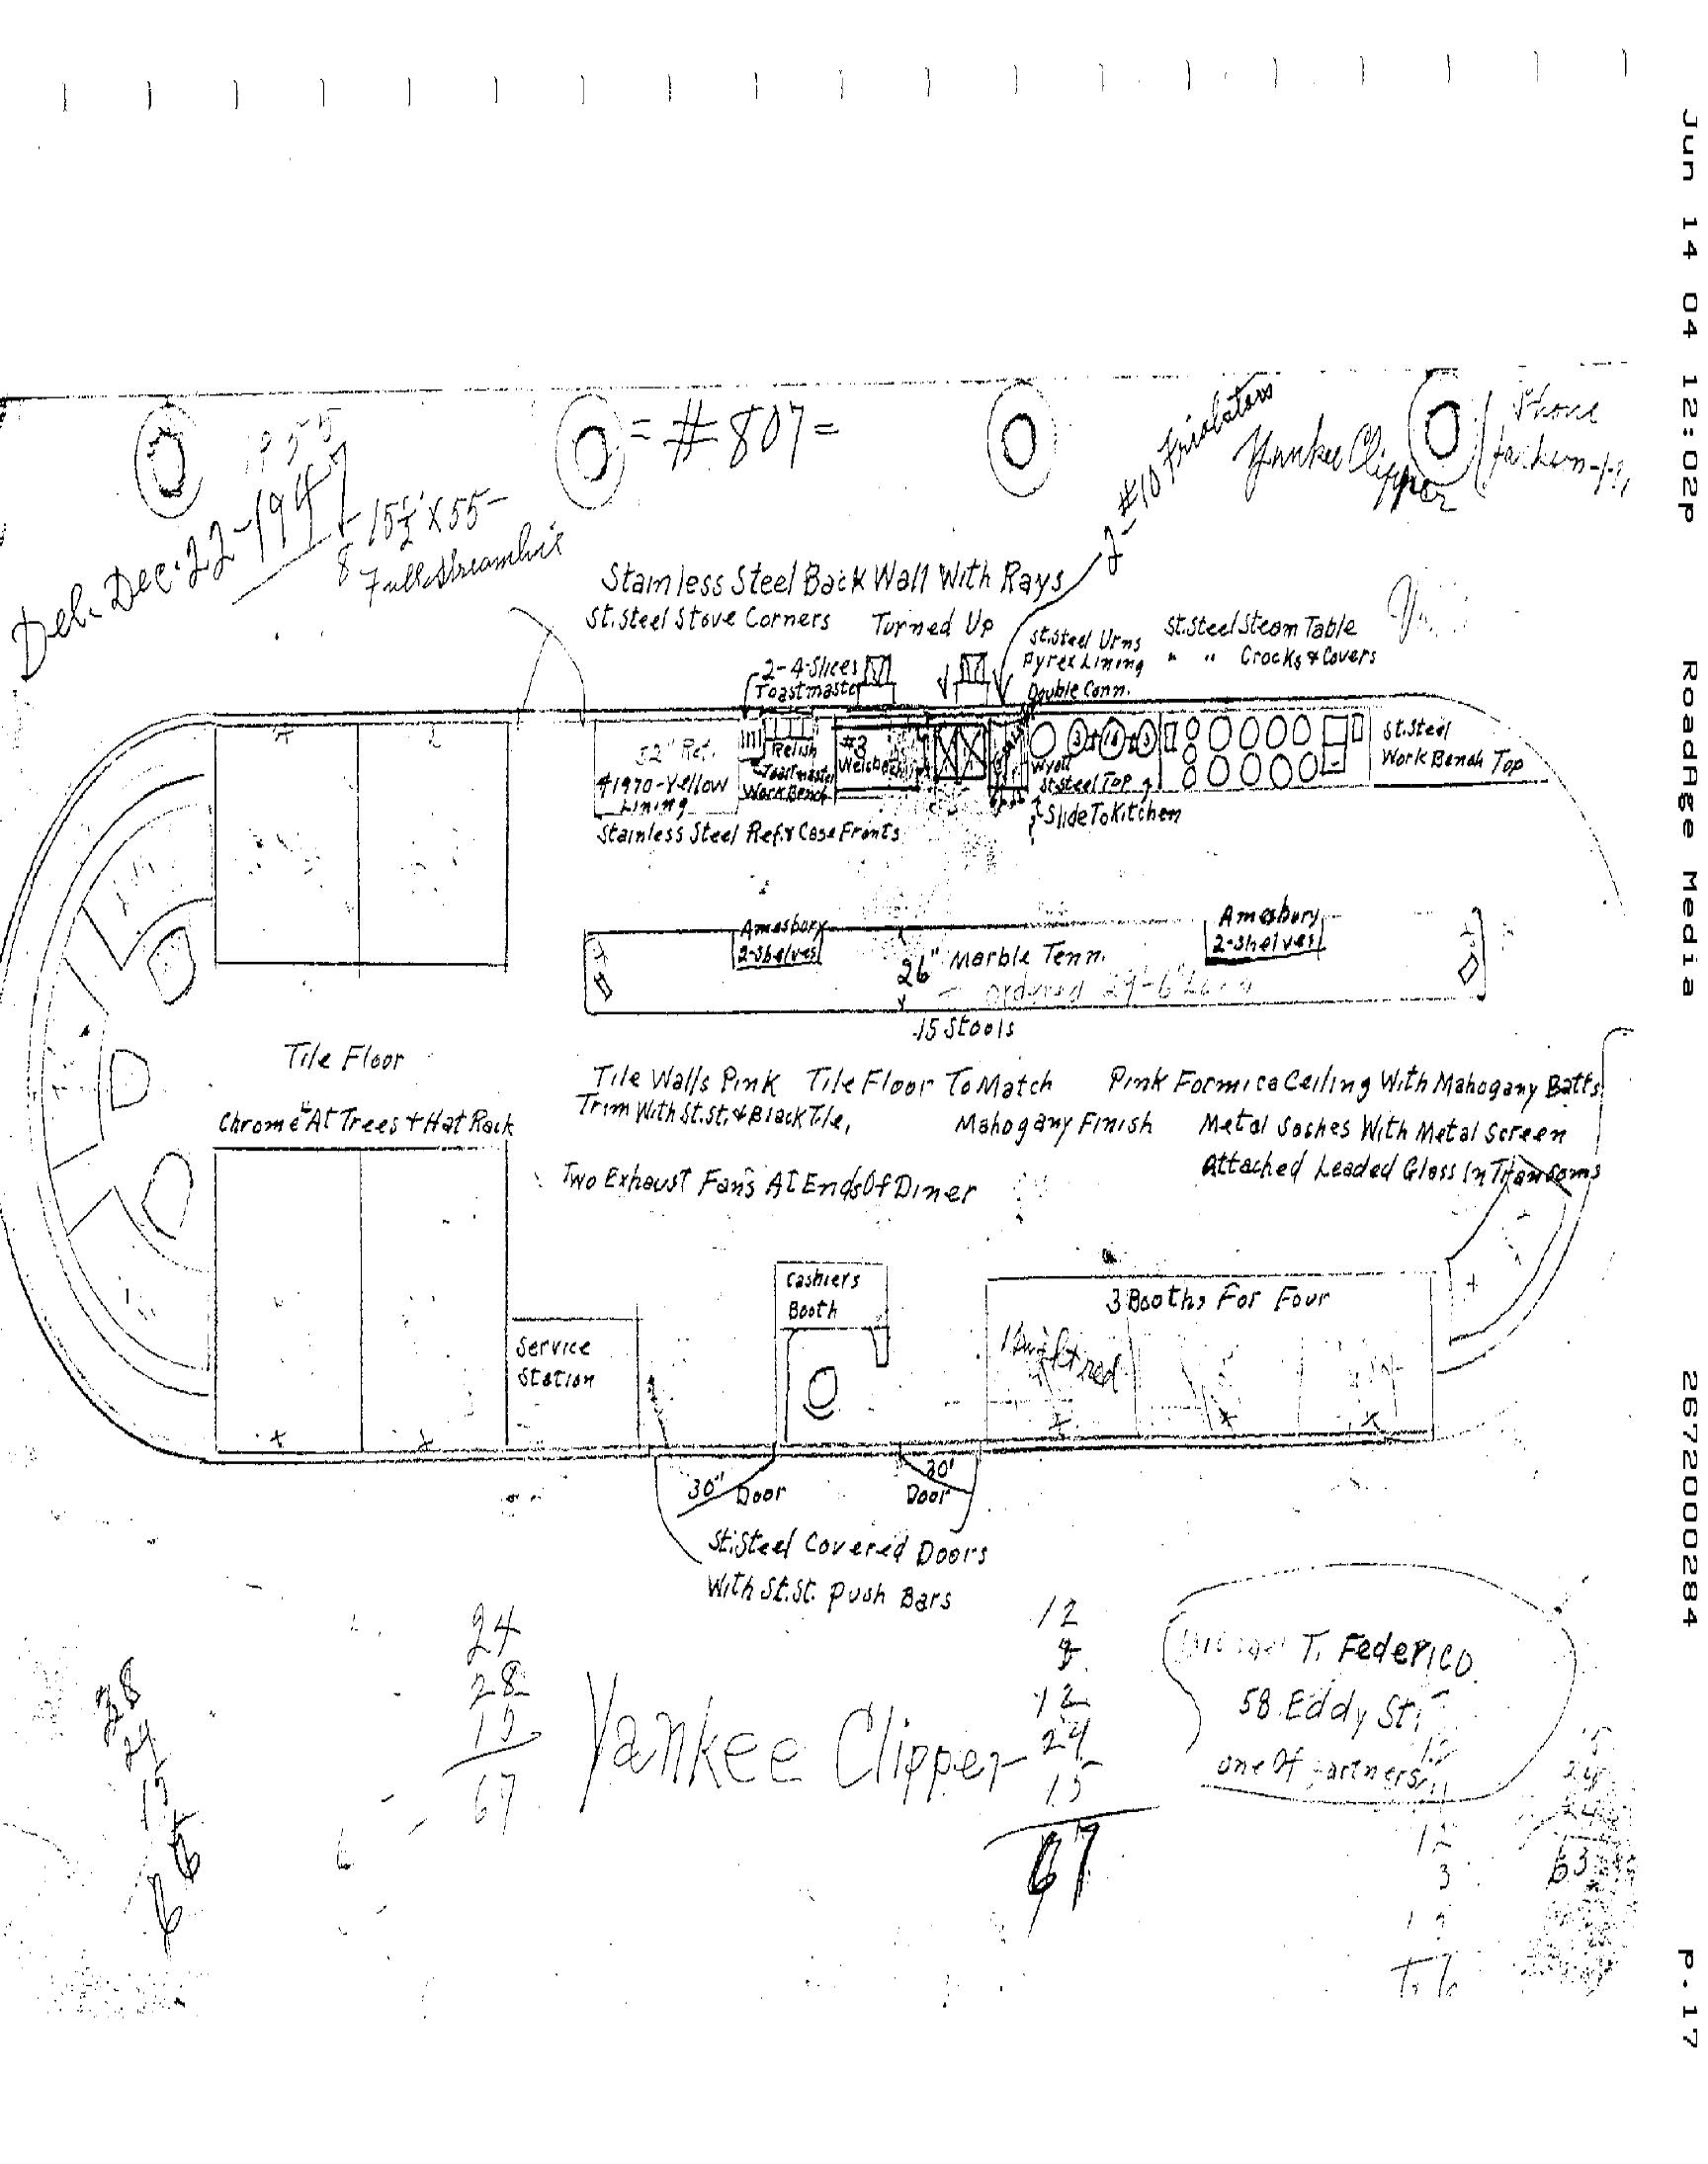 Jun 14 04 12:02p
RoadAge Media
2672000284
p.17
= #807 =
1955
Del. Dec. 22-1947
15½' X 55-
2-#10 Friolators
Yankee Clipper
Phone
Stainless Steel Back Wall With Rays
St. Steel Stove Corners Turned Up
St. Steel Urns
Pyrex Lining
Double Conn.
St. Steel Steam Table
" " Crocks & Covers
2-4-Slices
Toastmaster
52" Ref.
#1970-Yellow
Lining
Relish
Toastmaster
Work Bench
#3
Wyott
St. Steel Top
Slide To Kitchen
St. Steel
Work Bench Top
Stainless Steel Ref. & Case Fronts
Amesbury
2-Shelves
26" Marble Tenn.
ordered 29-6
Amesbury
2-Shelves
15 Stools
Tile Floor
Chrome At Trees & Hat Rack
Tile Walls Pink Tile Floor To Match
Trim With St. St. & Black Tile,
Mahogany Finish
Pink Formica Ceiling With Mahogany Batts
Metal Sashes With Metal Screen
Attached Leaded Glass In Transoms
Two Exhaust Fans At Ends Of Diner
Cashiers
Booth
3 Booths For Four
Service
Station
30" Door
30' Door
St. Steel Covered Doors
With St. St. Push Bars
24
28
15
67
Yankee Clipper
12
12
24
15
67
T. Federico
58 Eddy St.
one Of Partners
12
3
24
24
63